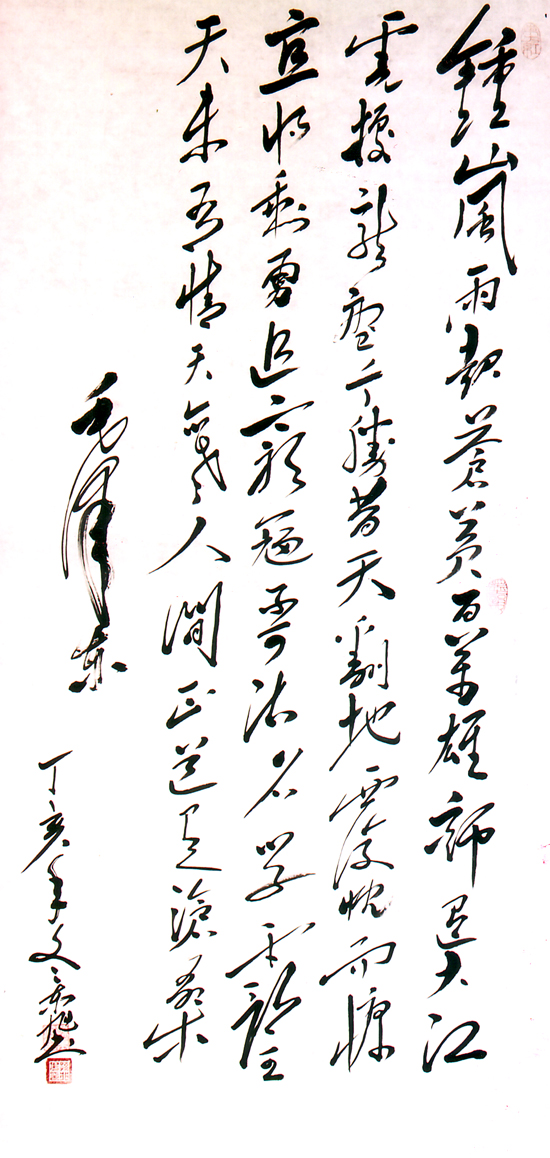 鍾山風雨起蒼黃百萬雄師過大江
虎據龍盤今勝昔天翻地覆慨而慷
宜將剩勇追窮寇不可沽名學霸王
天若有情天亦老人間正道是滄桑
毛澤東
丁亥年文